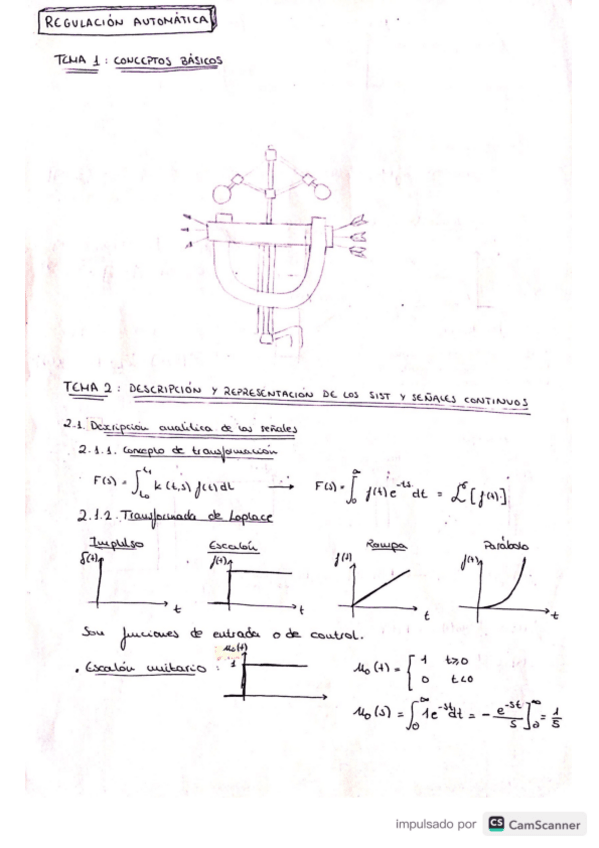 REGULACIÓN AUTOMÁTICA
TEMA 1: CONCEPTOS BÁSICOS
TEMA 2: DESCRIPCIÓN Y REPRESENTACIÓN DE LOS SIST Y SEÑALES CONTINUOS
2.1. Descripción analítica de las señales
2.1.1. Concepto de transformación
F(s) = ∫_{t₀}^{t₁} k(t,s) f(t) dt → F(s) = ∫_0^∞ f(t) e^{-ts} dt = ℒ[f(t)]
2.1.2. Transformada de Laplace
Impulso Escalón Rampa Parábola
δ(t) f(t) f(t) f(t)
t t t t
Son funciones de entrada o de control.
• Escalón unitario: u₀(t) 1
u₀(t) = { 1 t≥0
0 t<0
u₀(s) = ∫_0^∞ 1e^{-st} dt = - e^{-st}/s ]_0^∞ = 1/s
impulsado por CS CamScanner